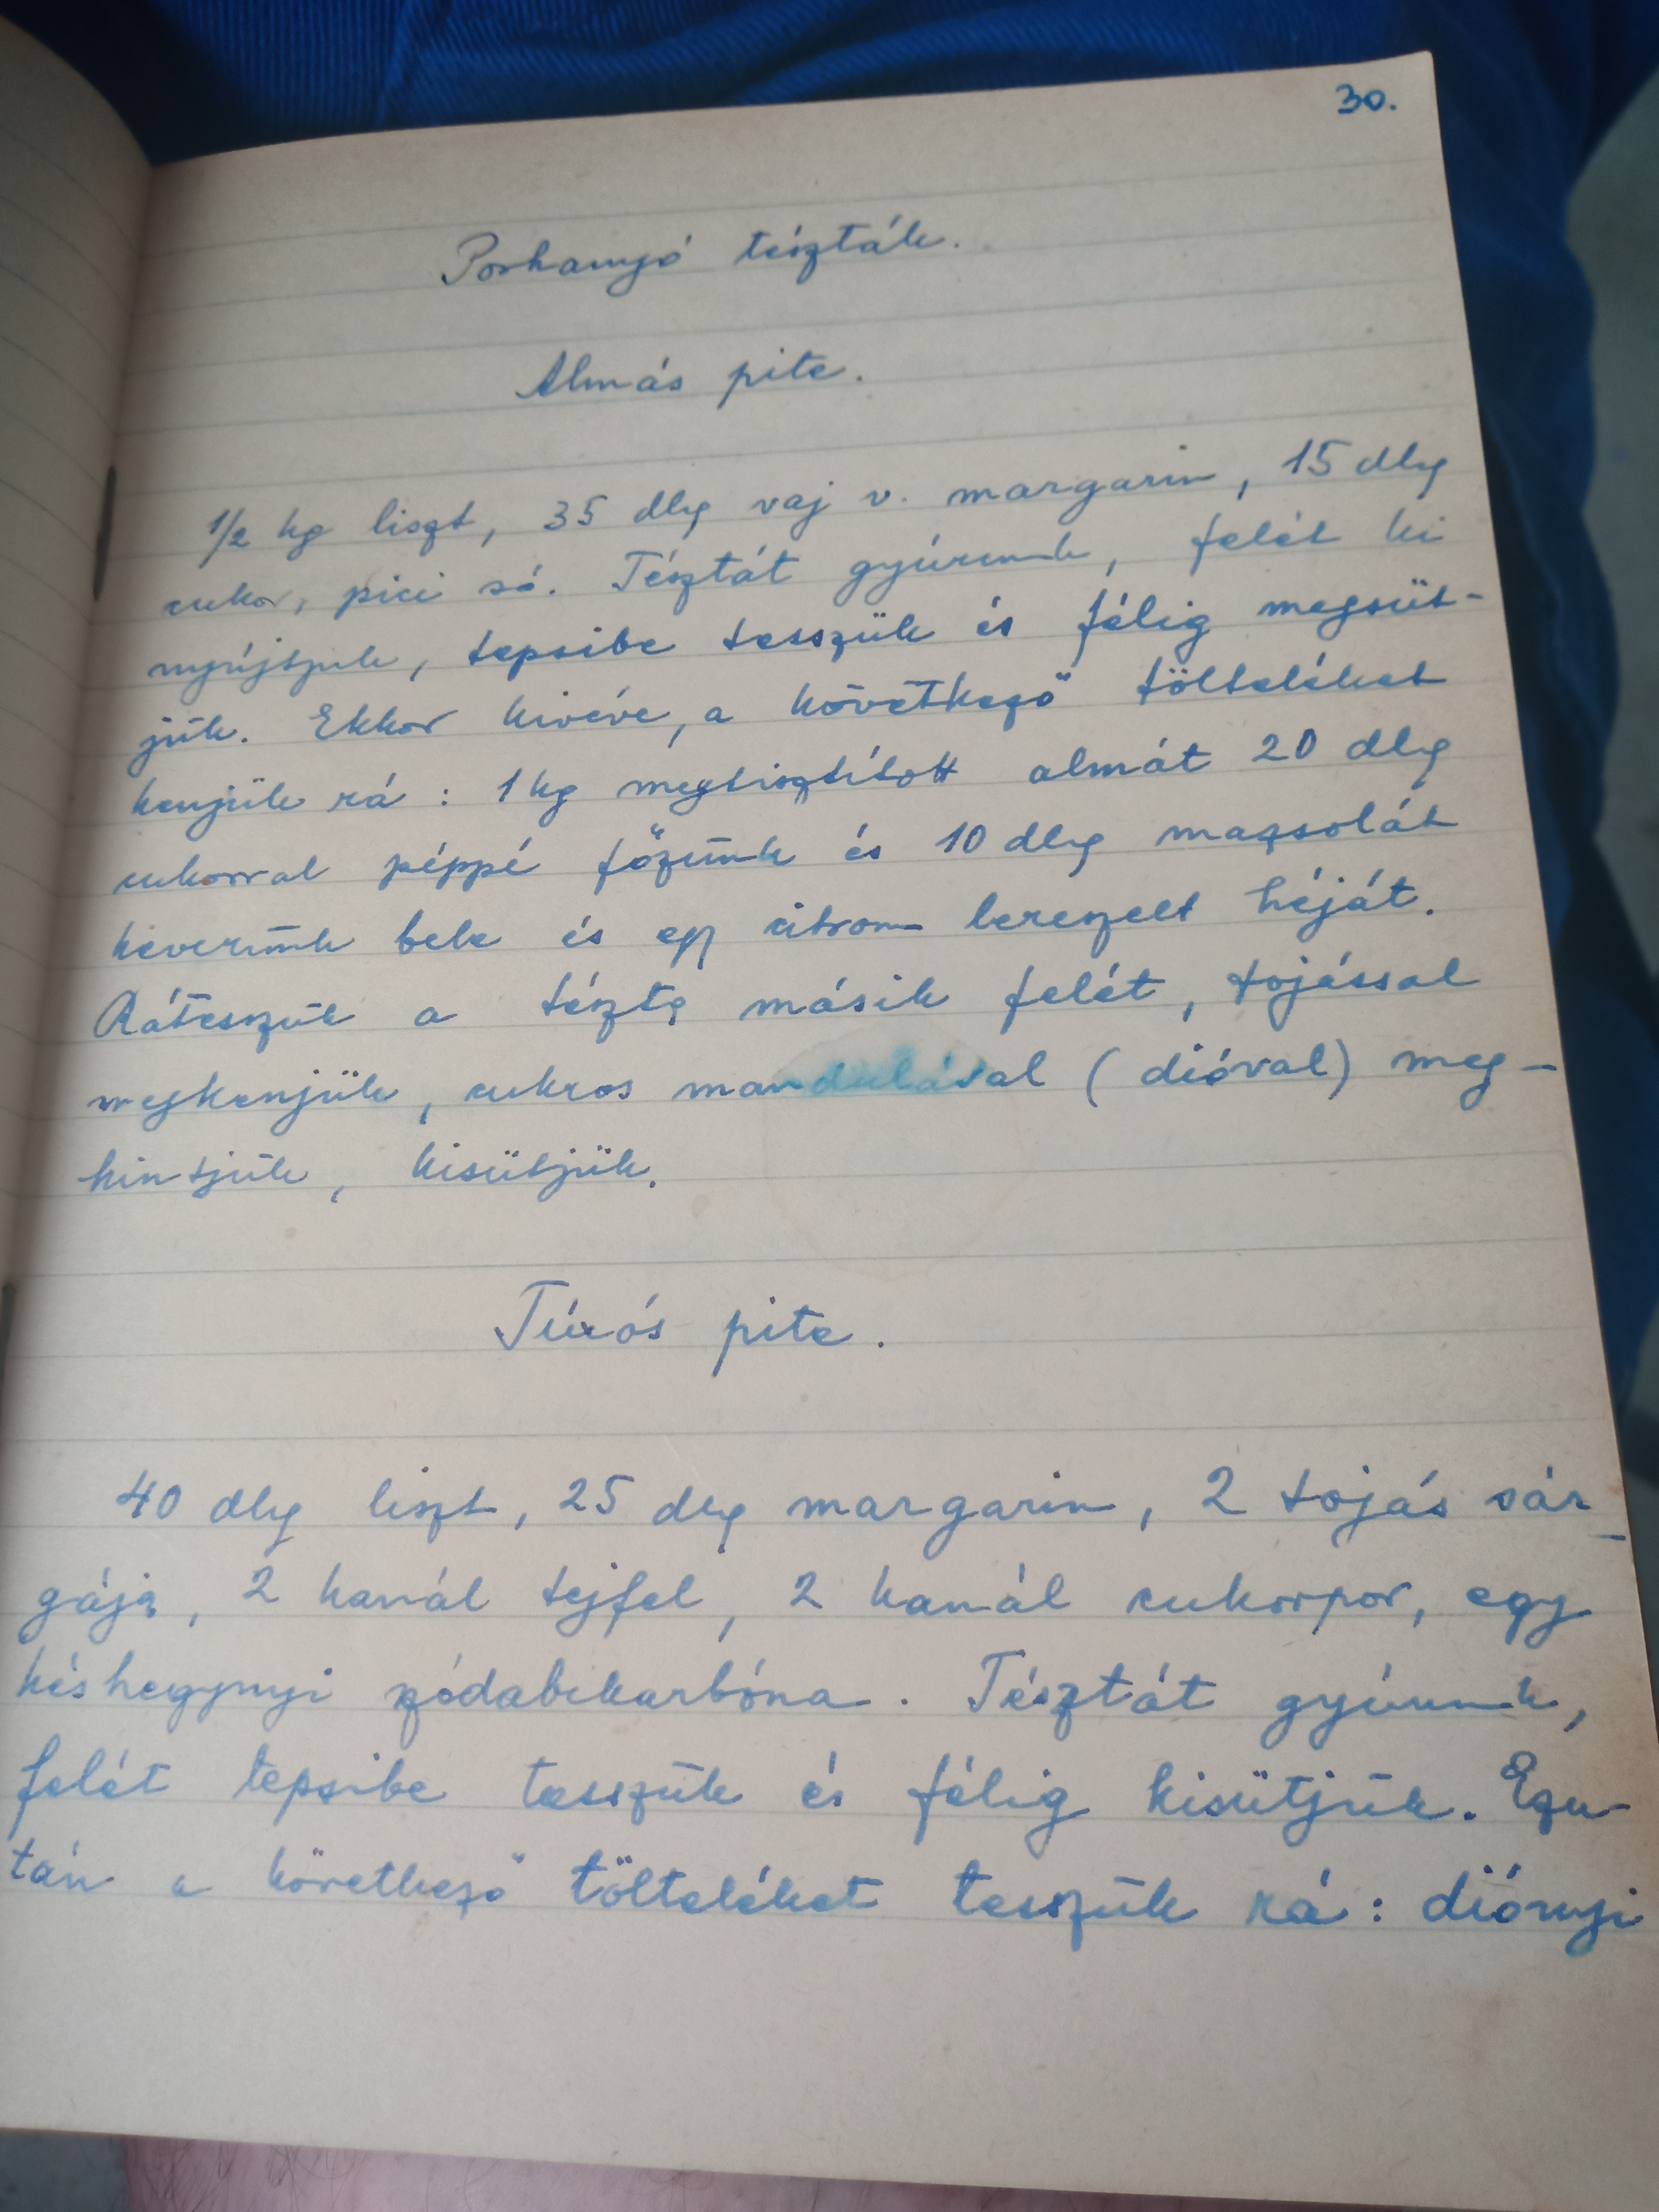 30.
Porhanyó tészták.
Almás pite.
1/2 kg liszt, 35 dkg vaj v. margarin, 15 dkg
cukor, pici só. Tésztát gyúrunk, felét ki
nyújtjuk, tepsibe tesszük és félig megsüt-
jük. Ekkor kivéve, a következő tölteléket
kenjük rá: 1 kg megtisztított almát 20 dkg
cukorral péppé főzünk és 10 dkg mazsolát
keverünk bele és egy citrom lereszelt héját.
Ráteszük a tészta másik felét, tojással
megkenjük, cukros mandulával (dióval) meg-
hintjük, kisütjük.
Túrós pite.
40 dkg liszt, 25 dkg margarin, 2 tojás sár-
gája, 2 kanál tejfel, 2 kanál cukorpor, egy
késhegynyi szódabikarbóna. Tésztát gyúrunk,
felét tepsibe tesszük és félig kisütjük. Ezu-
tán a következő tölteléket tesszük rá: diónyi